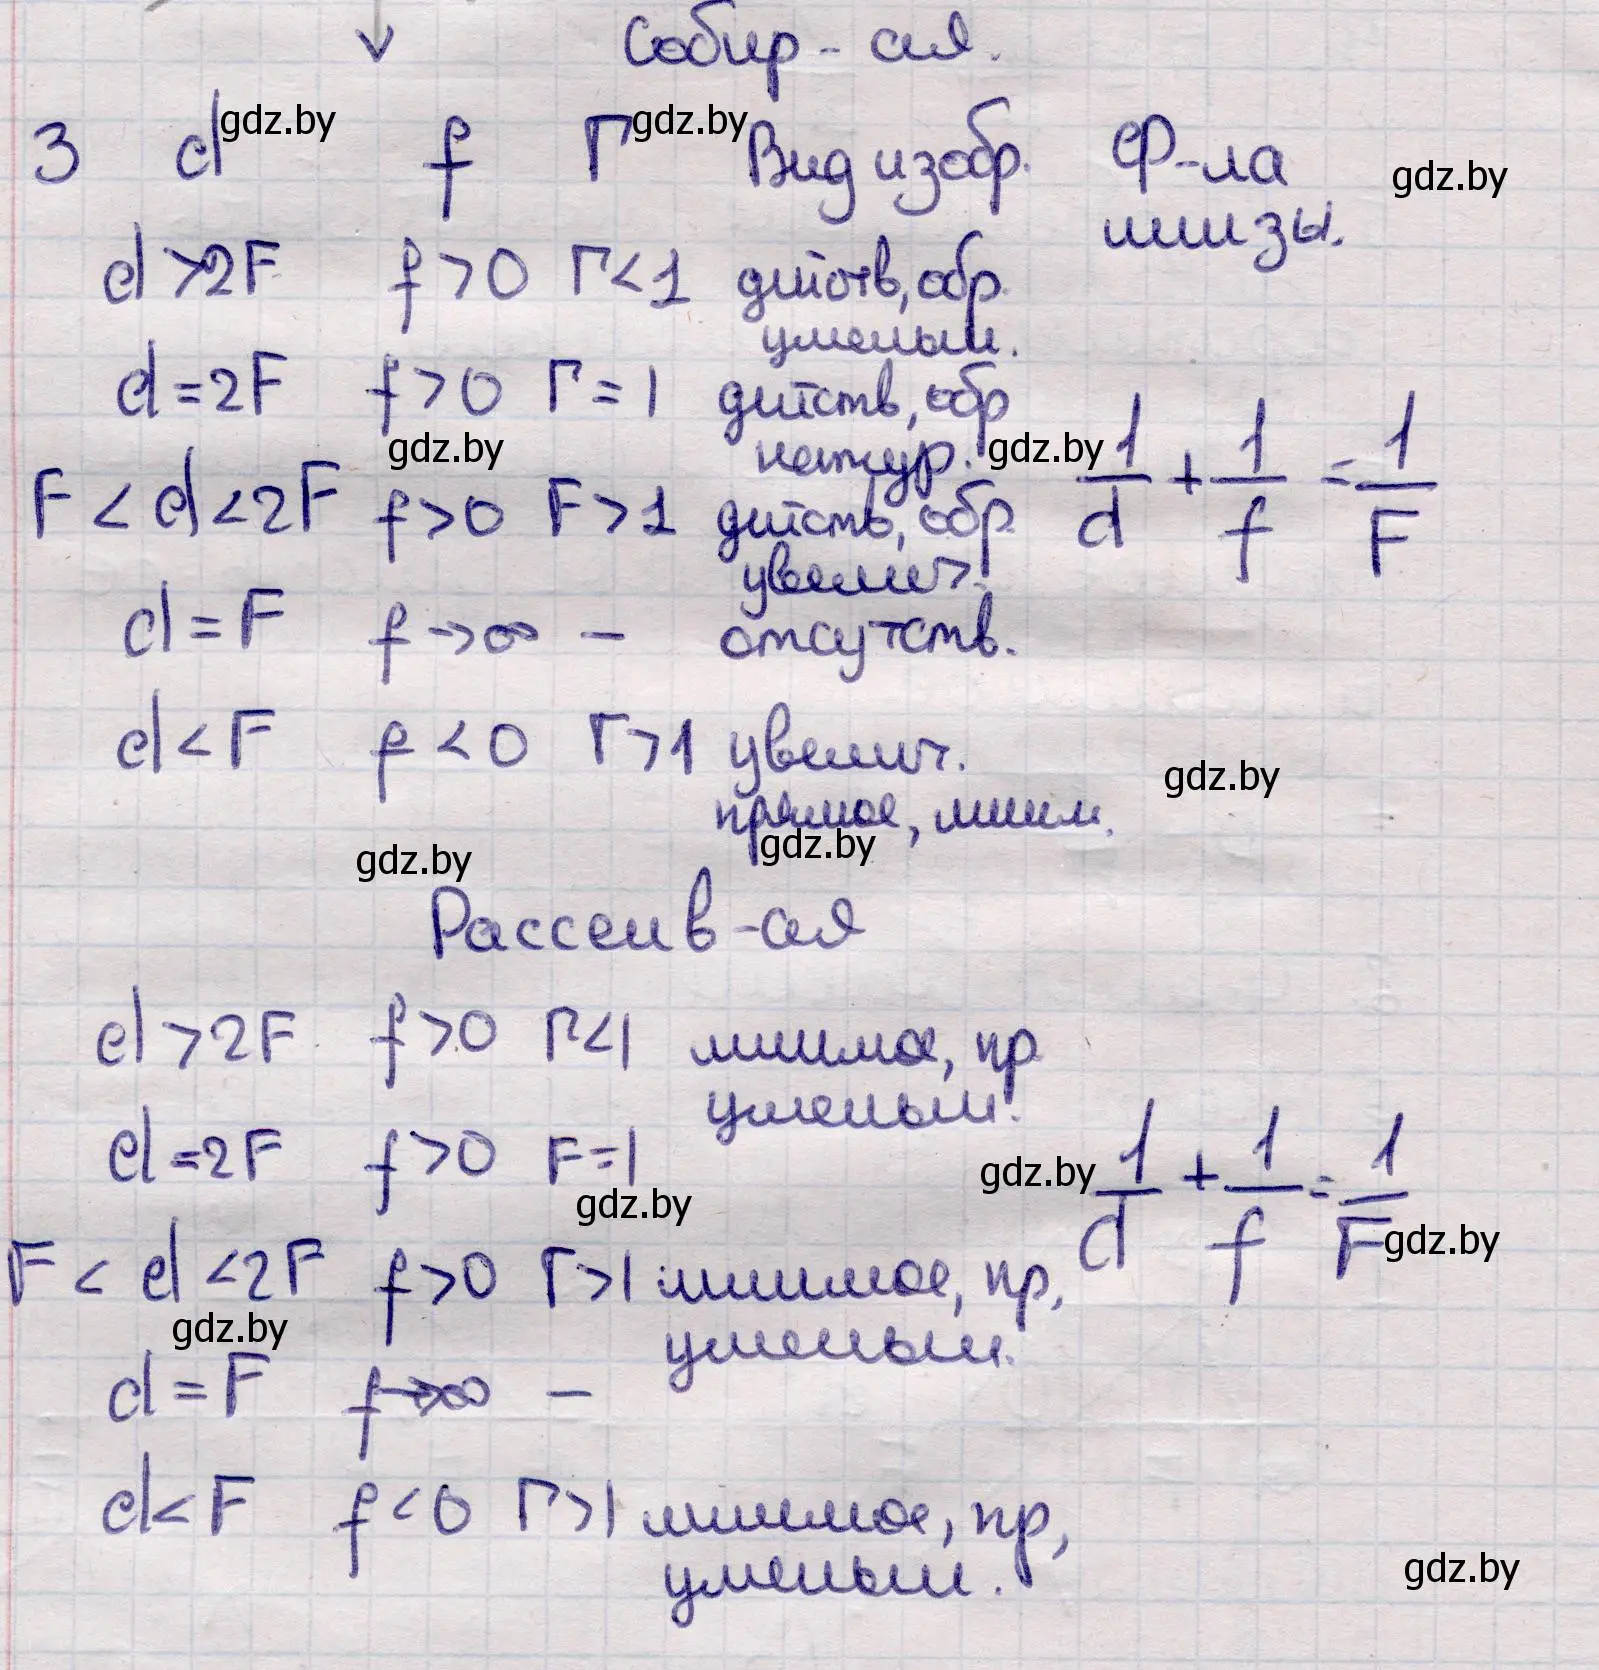 Собир-ая.
3 d f Г Вид изобр. Ф-ла
линзы.
d >2F f >0 Г<1 действ, обр.
уменьш.
d =2F f >0 Г=1 действ, обр
натур.
F < d <2F f >0 F>1 действ, обр.
увелич.
1/d + 1/f = 1/F
d = F f →∞ – отсутств.
d < F f <0 Г>1 увелич.
прямое, мним.
Рассеив-ая
d >2F f >0 Г<1 мнимое, пр
уменьш.
d =2F f >0 F=1
1/d + 1/f = 1/F
F < d <2F f >0 Г>1 мнимое, пр,
уменьш.
d = F f →∞ –
d < F f <0 Г>1 мнимое, пр,
уменьш.
gdz.by
gdz.by
gdz.by
gdz.by
gdz.by
gdz.by
gdz.by
gdz.by
gdz.by
gdz.by
gdz.by
gdz.by
gdz.by